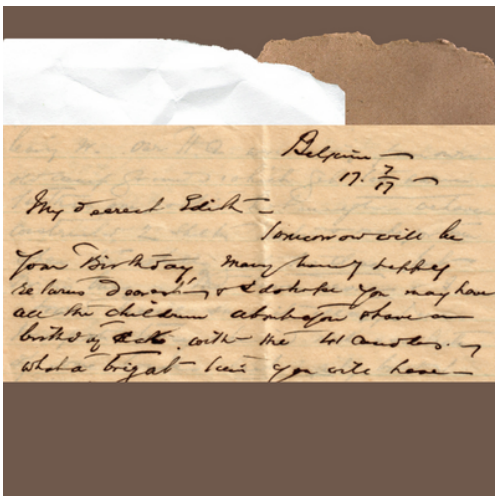 Belgium —
17. 7/17 —
My dearest Edith —
Tomorrow will be
your Birthday many many happy
returns Dearest, & I do hope you may have
all the children about you & have a
birthday cake with the candles. —
what a you will have —